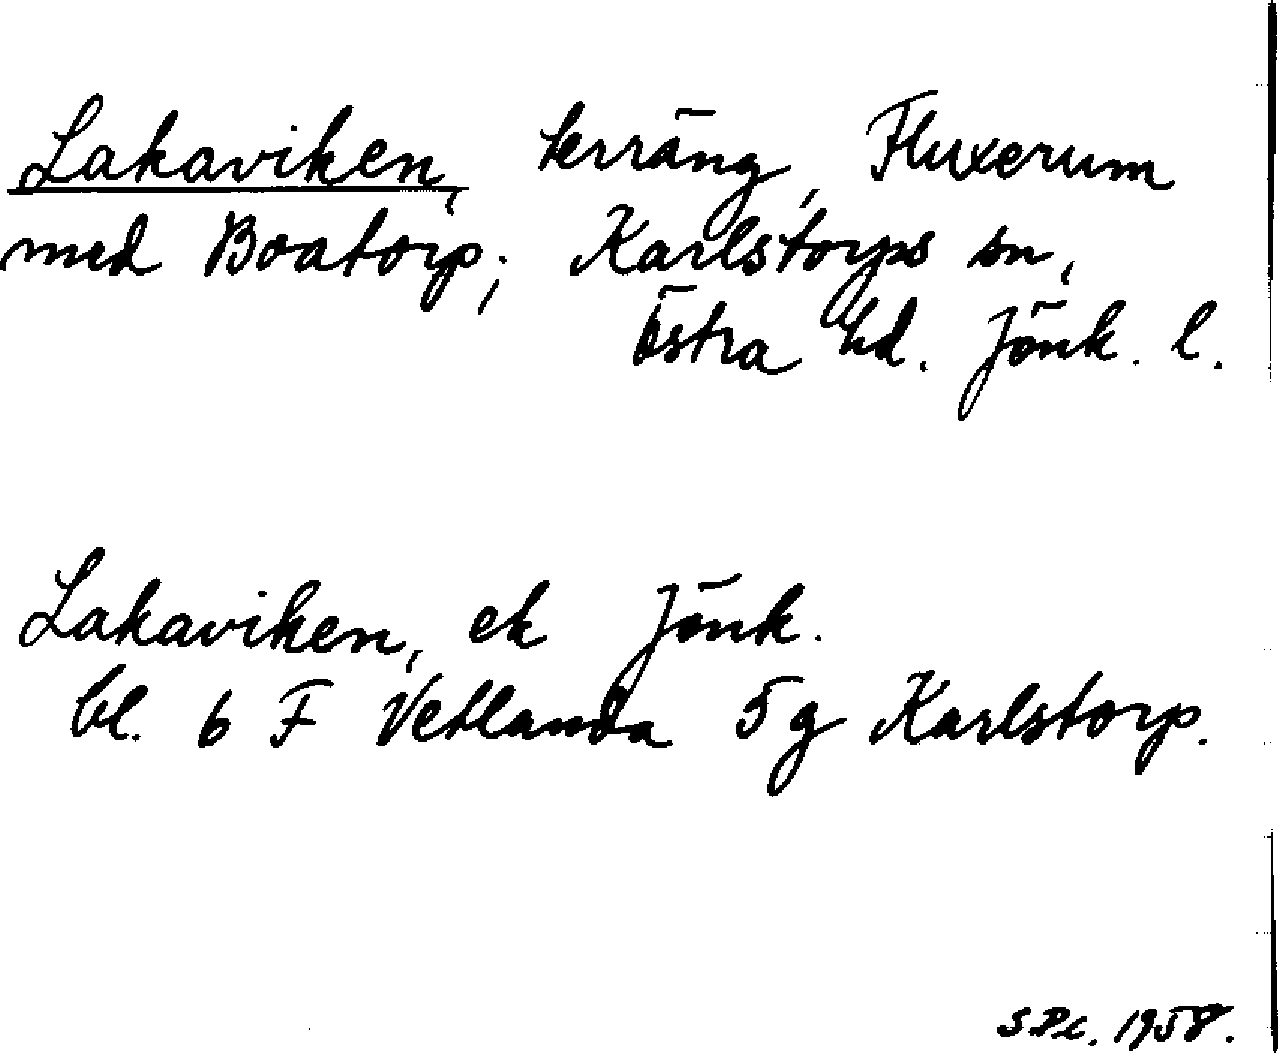 Lakaviken, terräng, Fluxerum
med Boatorp; Karlstorps sn,
Östra hd. Jönk. l.
Lakaviken, ek Jönk.
bl. 6 F Vetlanda 5 g Karlstorp.
1958.